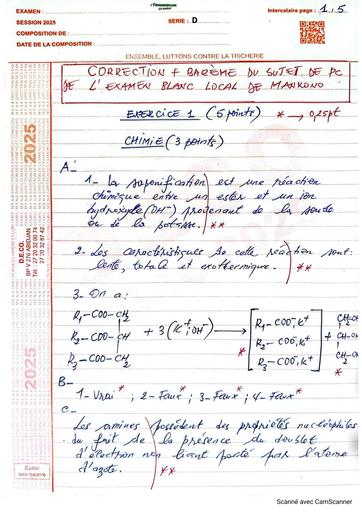 EXAMEN :
SESSION 2025
SERIE : D
COMPOSITION DE :
DATE DE LA COMPOSITION :
Intercalaire page : 1.5
ENSEMBLE, LUTTONS CONTRE LA TRICHERIE
CORRECTION + BARÈME DU SUJET DE PC
DE L'EXAMEN BLANC LOCAL DE MANKONO
EXERCICE 1 (5 points) * → 0,25pt
CHIMIE (3 points)
A-
1- La saponification est une réaction
chimique entre un ester et un ion
hydroxyde (OH⁻) provenant de la soude
ou de la potasse. **
2- Les caractéristiques de cette réaction sont:
lente, totale et exothermique. **
3- On a:
R₁-COO-CH₂
R₂-COO-CH + 3(K⁺; OH⁻) → R₁-COO⁻, K⁺
R₂-COO⁻, K⁺
R₃-COO⁻, K⁺ +
R₃-COO-CH₂
B-
1- Vrai * ; 2- Faux * ; 3- Faux * ; 4- Faux *
C-
Les amines possèdent des propriétés nucléophiles
du fait de la présence du doublet
d'électron non liant porté par l'atome
d'azote. **
2025
D.E.CO.
2025
Coller
Scanné avec CamScanner